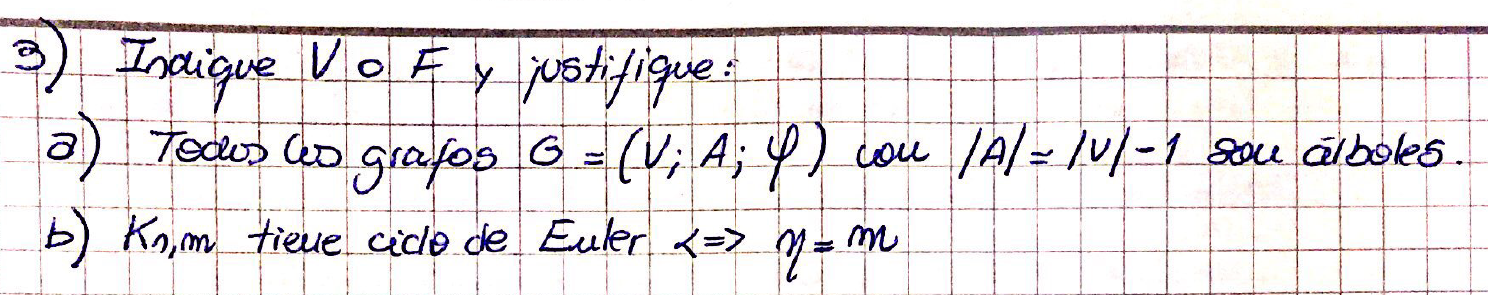 3) Indique V o F y justifique:
a) Todos los grafos G = (V; A; φ) con |A| = |V| - 1 son árboles.
b) Kn,m tiene ciclo de Euler <=> n = m